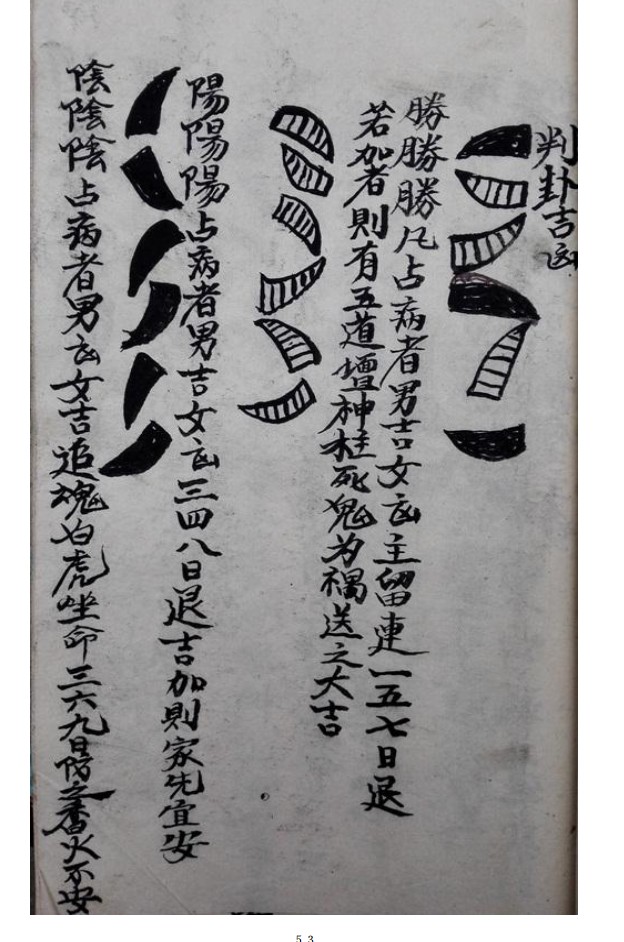 判卦吉凶
勝勝勝凡占病者男吉女凶主留連一五七日退
若加者則有五道壇神枉死鬼为禍送之大吉
陽陽陽占病者男吉女凶三四八日退吉加則家先宜安
陰陰陰占病者男凶女吉追魂白虎坐命三六九日防之香火不安
53